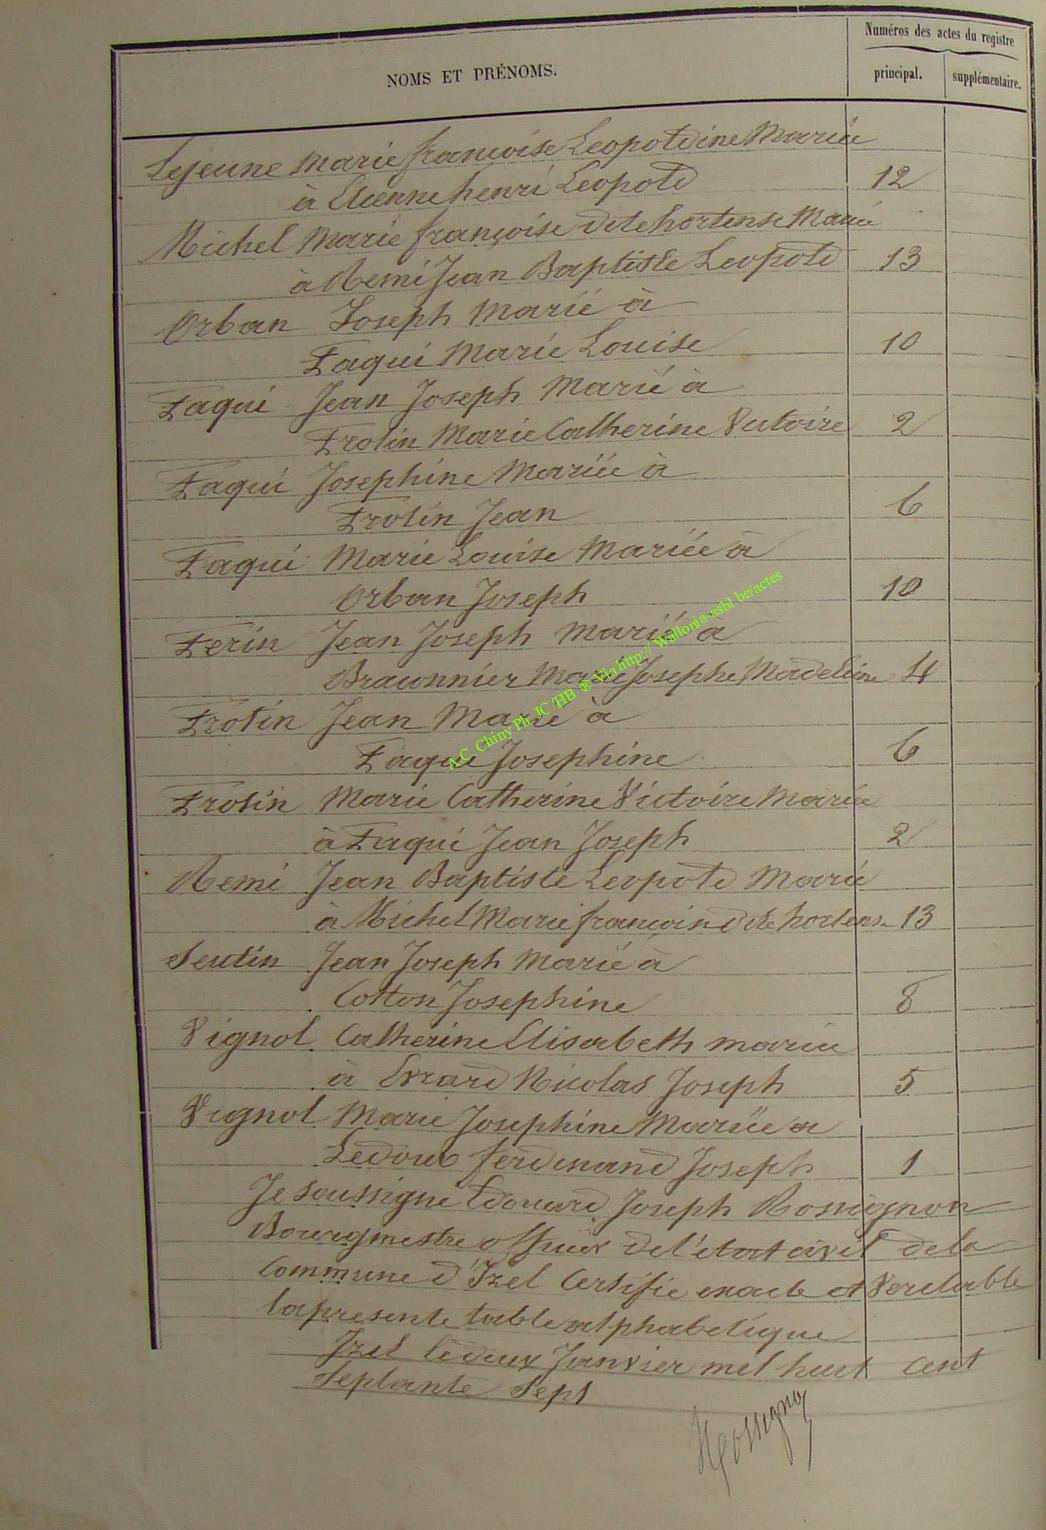 Numéros des actes du registre
NOMS ET PRÉNOMS.
principal.
supplémentaire.
Lejeune Marie françoise Leopoldine Mariée
à Etienne henri Léopold 12
Michel Marie françoise dite hortense Mariée
à Remi Jean Baptiste Leopold 13
Orban Joseph Marié à
Paqui Marie Louise 10
Paqui Jean Joseph Marié à
Protin Marie Catherine Victoire 2
Paqui Josephine Mariée à
Protin Jean 6
Paqui Marie Louise Mariée à
Orban Joseph 10
Perin Jean Joseph Marié a
Braconnier Marie Josephe Madeleine 4
Protin Jean Marié à
Paqui Josephine 6
Protin Marie Catherine Victoire Mariée
à Paqui Jean Joseph 2
Remi Jean Baptiste Leopold Marié
à Michel Marie françoise dite hortense 13
Seutin Jean Joseph Marié à
Cotton Josephine 8
Vignol Catherine Elisabeth mariée
à Evrard Nicolas Joseph 5
Vignol Marie Josephine Mariée a
Ledoux ferdinand Joseph 1
Je soussigné Edouard Joseph Rossignon
Bourgmestre officier de l'etat civil de la
Commune d'Izel Certifie exacte et Veritable
la presente table alphabetique
Izel le deux Janvier mil huit cent
Septante Sept
Rossignon
A.C. Chiny Ph JC /HB @ Via http:// Wallonia-asbl.be/actes